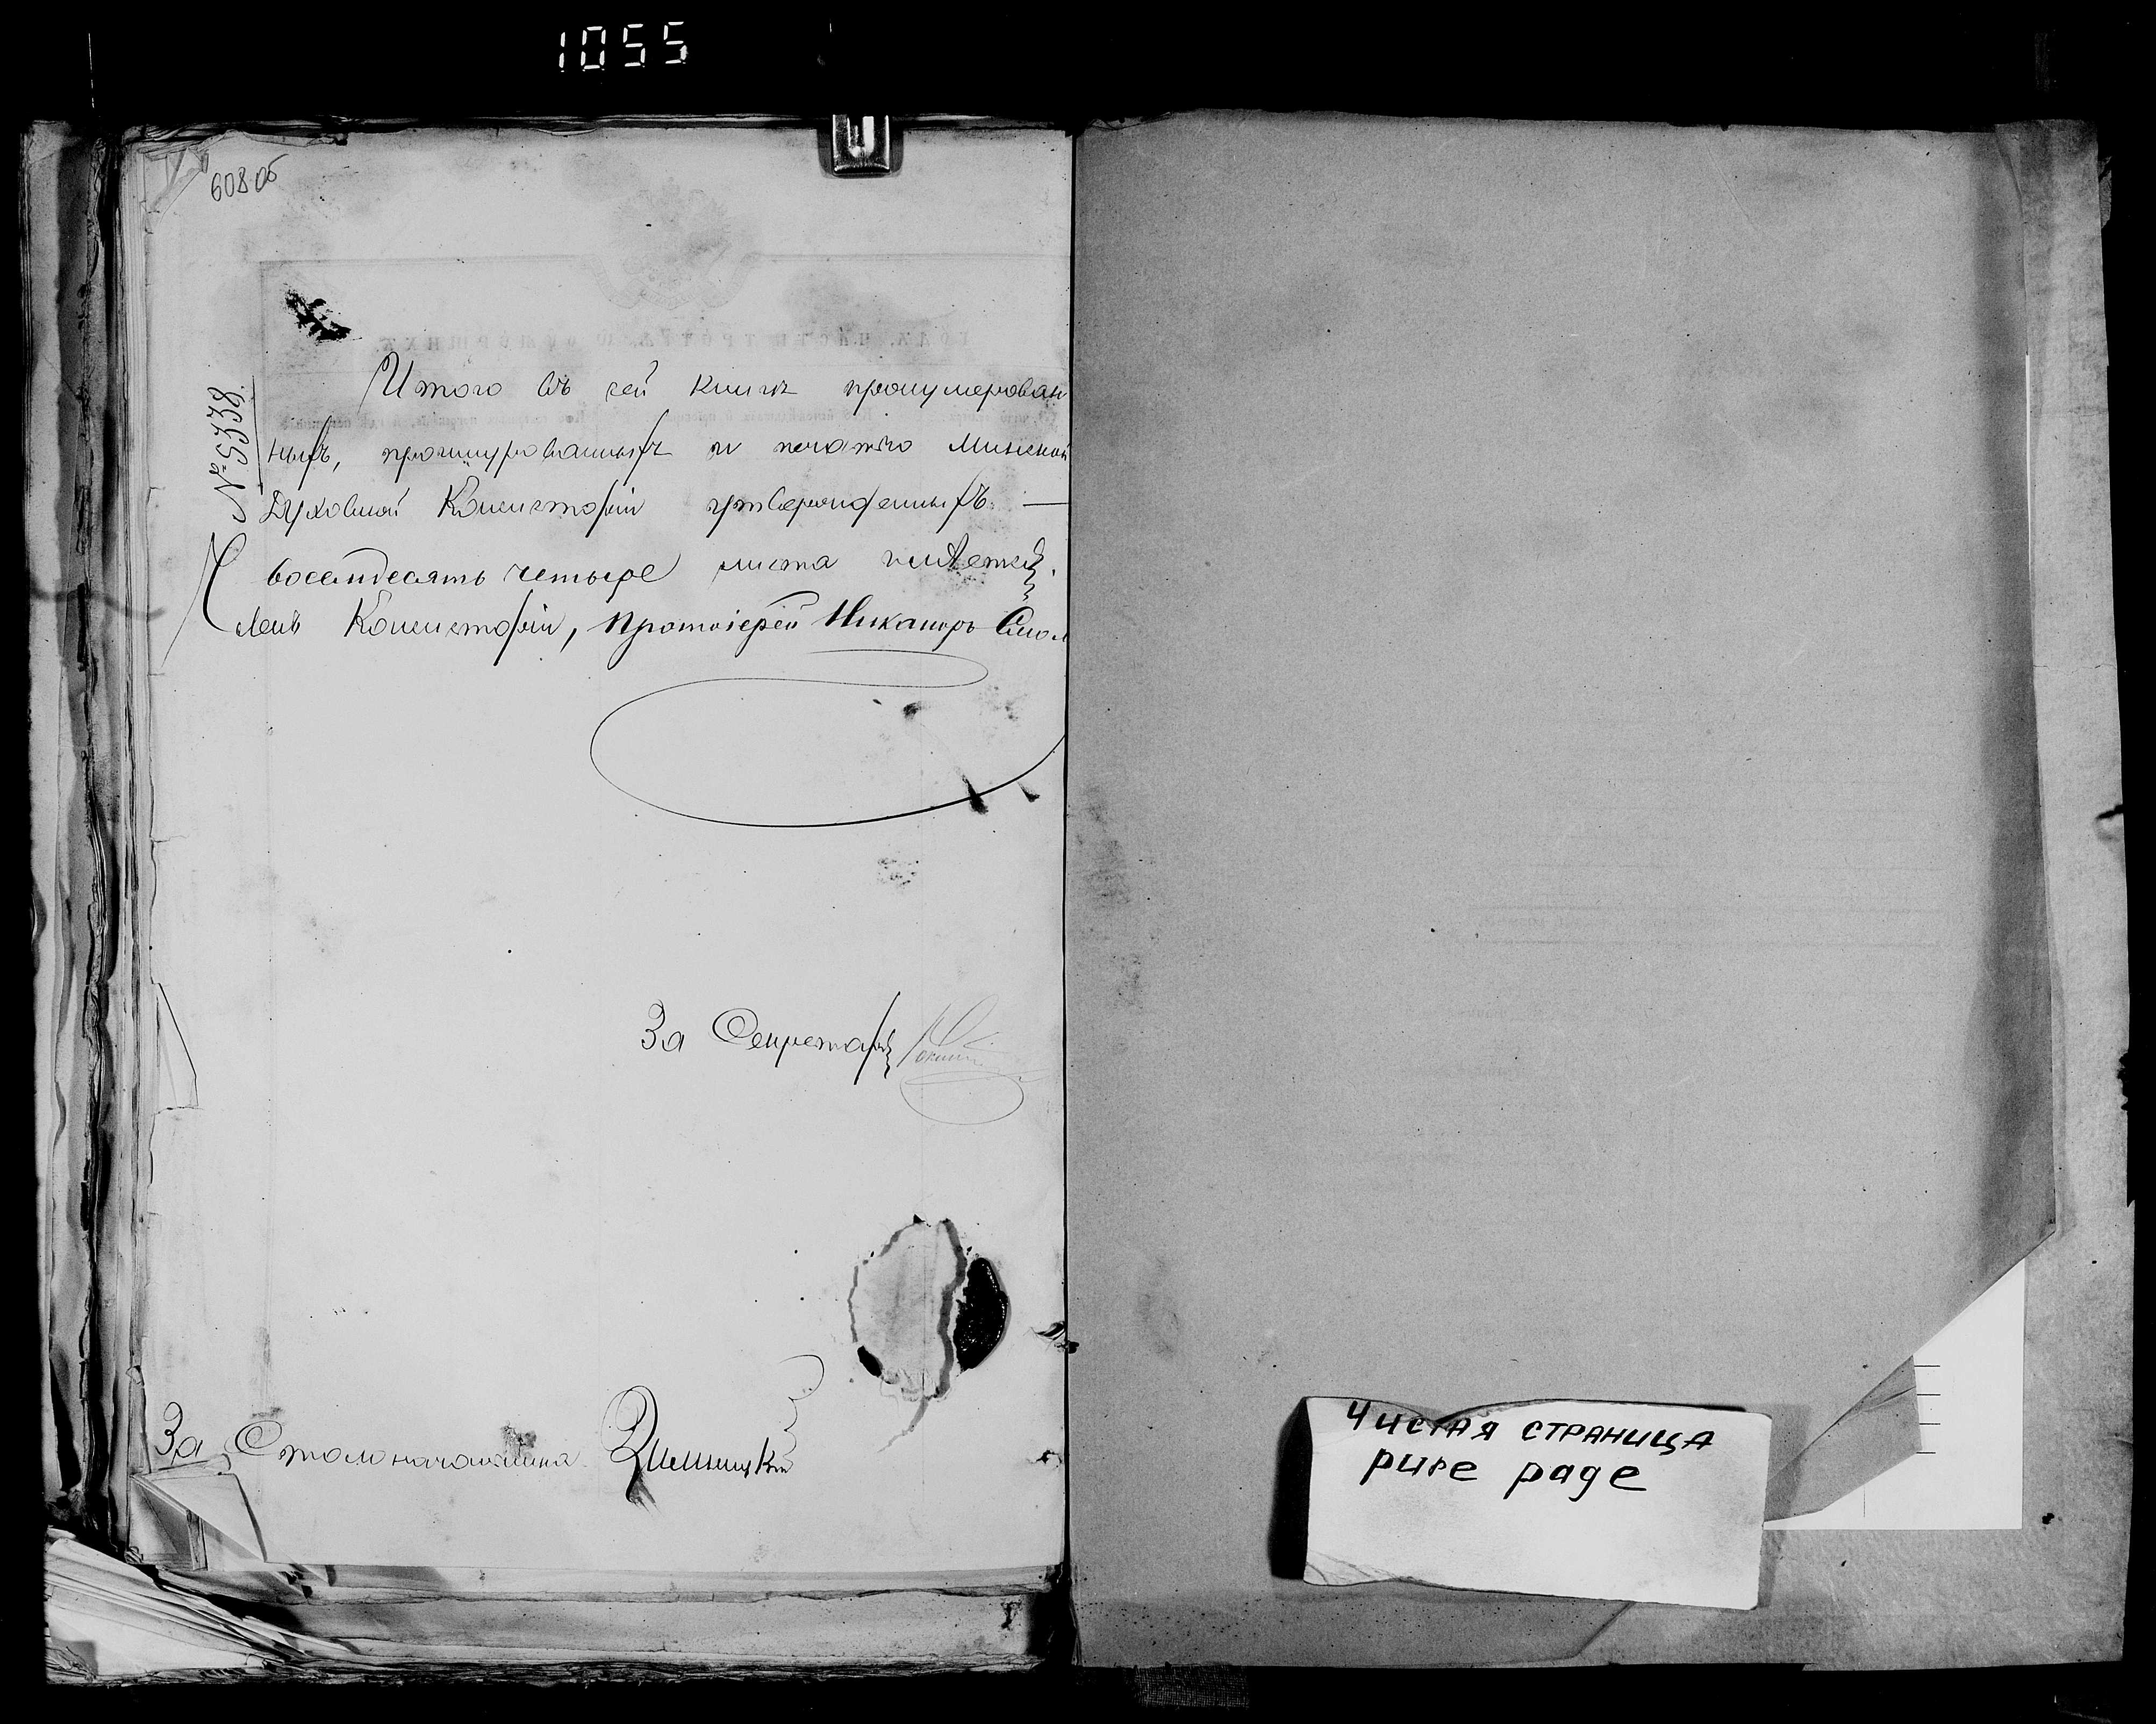 1055
608 об
№ 5338.
Итого въ сей книгѣ пронумерован
ныхъ, прошнурованныхъ и печатью Минской
Духовной Консисторіи утвержденныхъ —
восемдесять четыре листа имѣется.
Членъ Консисторіи, Протоіерей Никаноръ Смол
За Секретаря
За Столоначальника
Чистая страница
pure page